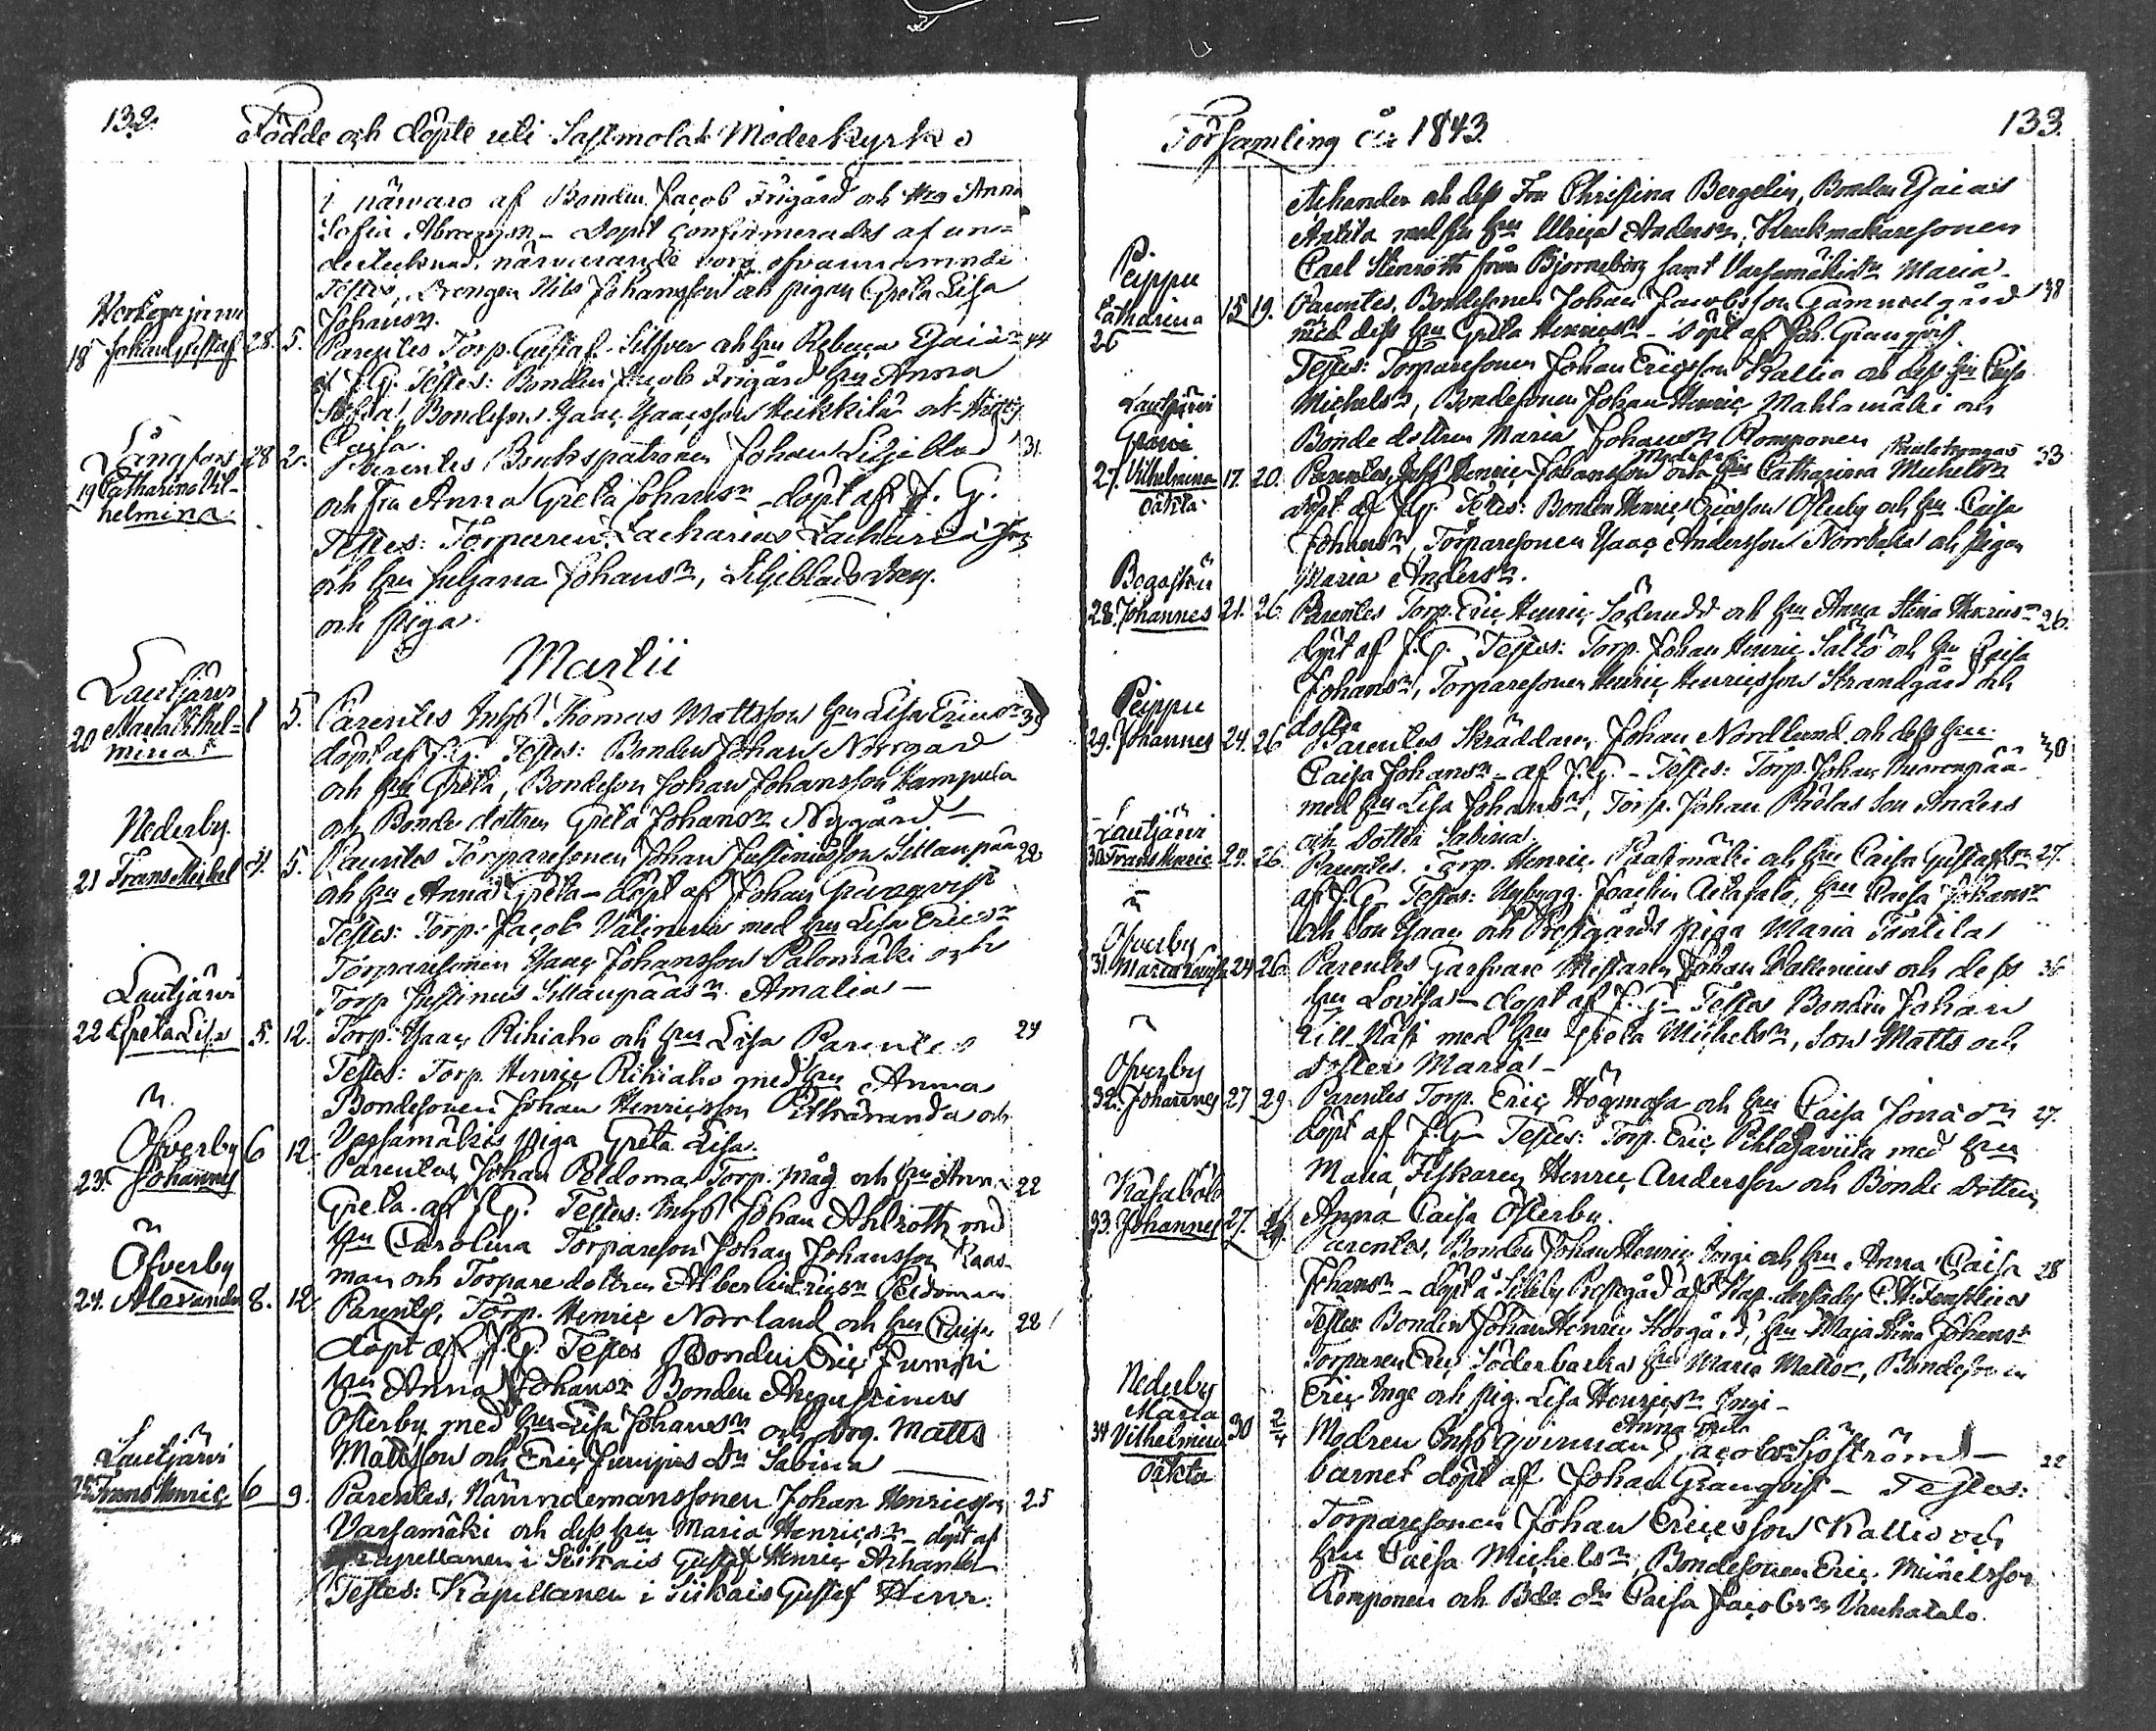 132.
Födde och döpte uti Sastmola Moderkyrko
i närwaro af Bonden Jacob Frigård och Anna
Sofia - Dopet confirmerades af un=
dertecknad, närwarande woro ofwannämnde
Testes, Drengen Nils Johansson och pigan Greta Lisa
Johansn.
18 Johan Gustaf 28. 5. Parentes Torp. Gustaf Silfver och hu Rebeca 44
af J. G. Testes: Bonden Jacob Frigård hu Anna
Sofia, Bondeson Isaac Isaacsson Heikkilä och
Caisa.
Långfors 28 2. Parentes Brukspatronen Johan Liljeblad 31
19 Catharina Vil-
helmina
och fru Anna Greta Johansn - döpt af J. G.
Testes: Torparen Zacharias
och hu Juliana Johansn, Liljeblads dreng
och piga.
Martii
Lautjärvi
20 Maria Vilhel-
mina 1 5. Parentes Inhs Thomas Mattsson hu Lisa Ericsn 39
döpt af J. G. Testes: Bonden Johan Norrgård
och hu Greta, Bondeson Johan Johansson
och Bonde dottren Greta Johansn Nygård -
Nederby.
21 Frans Michel 4. 5. Parentes Torparesonen Johan Justinusson Sillanpää 22
och hu Anna Greta - döpt af Johan Granqvist
Testes: Torp. Jacob med hu Lisa Ericsn
Torparesonen Isaac Johansson Palomäki och
Torp Justinus Sillanpääs dn Amalia -
Lautjärvi
22 Greta Lisa 5. 12. Torp. Isaac Rihiaho och hu Lisa Parentes 24
Testes: Torp. Henric Rihiaho med hu Anna
Bondesonen Johan Henricsson och
Varsamäkis piga Greta Lisa.
Ofverby 6 12.
23. Johannes
Parentes, Johan Peldoma Torp. måg och hu Anna 22
Greta. af J. G. Testes: Inhs Johan Ahlroth med
hu Carolina Torpareson Johan Johansson
man och Torpare dottren Albertina Ericsn Peldoman
Ofverby
24. Alexander 8. 12. Parentes, Torp. Henric Norrland och hu Caisa 22
döpt af J. G. Testes Bonden Eric Jumpi
hu Anna Johansn Bonden
Österby med hu Lisa Johansn och drg. Matts
Mattsson och Eric dn Sabina
Lautjärvi
25 Frans Henric 6 9. Parentes, Nämndemanssonen Johan Henricsson 25
Varsamäki och dess hu Maria Henricsn - döpt af
Capellanen i Siikais Gustaf Henric
Testes: Kapellanen i Siikais Gustaf Henr.
Församling år 1843.
133.
och dess Fru Christina Bergelin, Bonden
Antila med hu Ulrica Andersn,
Carl Stenroth från Björneborg samt Varsamäkis dn Maria -
Peippu
Catharina 15 19. Parentes, Bondesonen Johan Jacobsson Gammelgård 38
26
med dess hu Greta Henricsn - döpt af Joh. Granqvist
Testes: Torparesonen Johan Ericsson Kallio och dess hu Caisa
Michelsn, Bondesonen Johan Henric Mahlamäki och
Bonde dottren Maria Johansn Komponen
Lautjärvi
27. Vilhelmina 17. 20. Parentes, Inhs Henric Johansson och hu Catharina Michelsn 33
oäkta
döpt af J. G. Testes: Bonden Henric Ericsson Österby och hu Caisa
Johansn, Torparesonen Isaac Andersson Norrbacka och pigan
Maria Andersn.
28. Johannes 21. 26. Parentes Torp. Eric Henric och hu Anna Stina Henricsn 26.
döpt af J. G. Testes: Torp. Johan Henric Saltö och hu Caisa
Johansn, Torparesonen Henric Henricsson Strandgård och
dotter
Peippu
29. Johannes 24. 26 Parentes Skräddaren Johan Nordlund och dess hu 30
Caisa Johansn - af J. G. - Testes: Torp. Johan
med hu Lisa Johansn, Torp. Johan son Anders
och dotter Sabina.
Lautjärvi
30 Frans Henric 24. 26. Parentes. Torp. Henric och hu Caisa Gustafsn 27.
af J. G. Testes: Nybygg. Joachim hu Caisa Johansn
och son Isaac och Prestgårds piga Maria
Ofverby
31. Maria Lovisa 24 26. Parentes Garfvare Mestaren Johan Wallenius och dess 36
hu Lovisa - döpt af J. G. - Testes Bonden Johan
Lill-Näsi med hu Greta Michelsn, Son Matts och
dotter Maria -
Ofverby
32. Johannes 27 29 Parentes Torp. Eric Högmosa och hu Caisa 27.
döpt af J. G Testes: Torp. Eric Pihlajaviita med hu
Maria, Fiskaren Henric Andersson och Bonde dottren
Anna Caisa Österby.
Kasaböle
33. Johannes 27. Parentes, Bonden Johan Henric Ingi och hu Anna Caisa 28
Johansn - döpt å Sideby Prestgård af
Testes: Bonden Johan Henric Storgård, hu Maja Stina Johansn
Torparen Eric Söderbacka hu Maria Mattsn, Bondesonen
Eric Inge och pig. Lisa Henricsn Ingi -
Nederby
Maria
34 Vilhelmina 30 2/4 Modren Inhs qvinnan Anna Greta Jacobsn Sjöström - 22
oäkta
barnet döpt af Johan Granqvist - Testes:
Torparesonen Johan Ericsson Kallio och
hu Caisa Michelsn, Bondesonen Eric Michelsson
Komponen och Bde dn Caisa Jacobsn Vanhatalo.